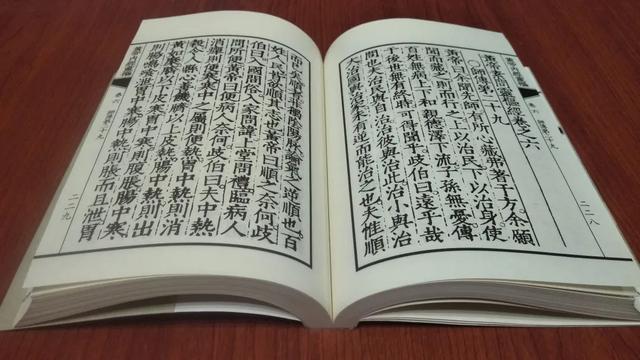 黃帝素問靈樞經卷之六
師傳第二十九
黃帝曰余聞先師有所心藏弗著於方余願
聞而藏之則而行之上以治民下以治身使
百姓無病上下和親德澤下流子孫無憂傳
於後世無有終時可得聞乎歧伯曰遠乎哉
問也夫治民與自治治彼與治此治小與治
大治國與治家未有逆而能治之也夫惟順
卷六 師傳第二十九
二二八
而已矣順者非獨陰陽脉論氣之逆順也百
姓人民皆欲順其志也黃帝曰順之奈何歧
伯曰入國問俗入家問諱上堂問禮臨病人
問所便黃帝曰便病人奈何歧伯曰夫中熱
消癉則便寒寒中之屬則便熱胃中熱則消
穀令人懸心善饑臍以上皮熱腸中熱則出
黃如糜臍以下皮寒胃中寒則腹脹腸中寒
則腸鳴飧泄胃中寒腸中熱則脹而且泄胃
卷六 師傳第二十九
二二九